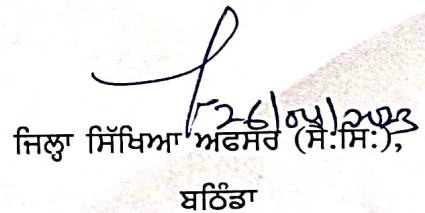 26/04/2023
ਜਿਲ੍ਹਾ ਸਿੱਖਿਆ ਅਫਸਰ (ਸੈ:ਸਿ:),
ਬਠਿੰਡਾ